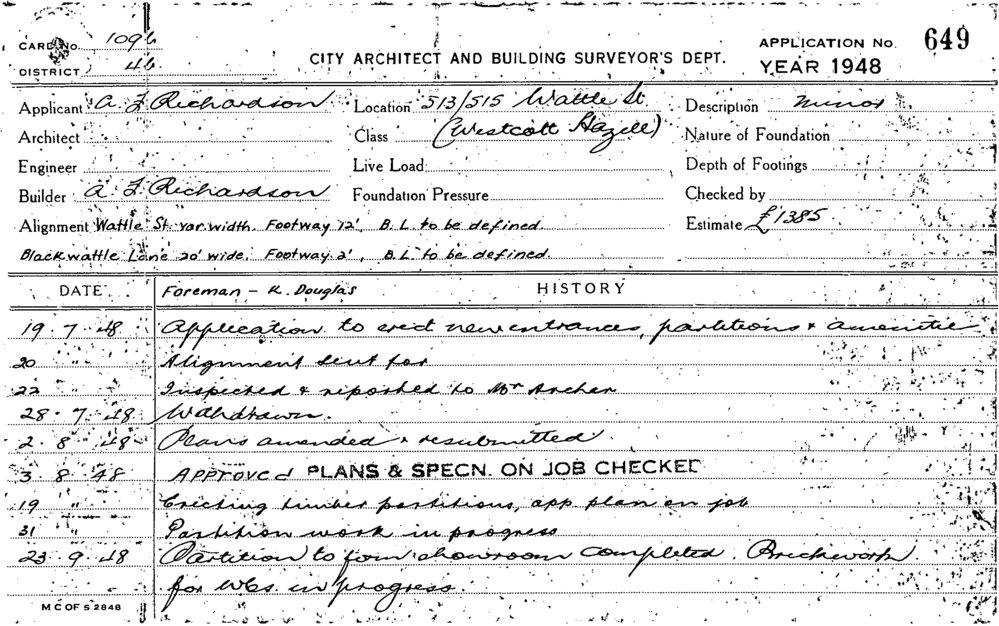 CARD No. 1096
DISTRICT 46
CITY ARCHITECT AND BUILDING SURVEYOR'S DEPT.
APPLICATION No. 649
YEAR 1948
Applicant A F Richardson Location 513/515 Wattle St Description Minor
Architect Class (Westcott Hazell) Nature of Foundation
Engineer Live Load Depth of Footings
Builder A F Richardson Foundation Pressure Checked by
Alignment Wattle St. var. width. Footway 12', B.L. to be defined. Estimate £1385
Blackwattle Lane 20' wide. Footway 2', B.L. to be defined.
DATE Foreman - K. Douglas HISTORY
19.7.48 Application to erect new entrances, partitions & amenitie
20 " Alignment sent for
22 " Inspected & reported to Mr Archer
28.7.48 Withdrawn.
2.8.48 Plans amended & resubmitted
3.8.48 APPROVED PLANS & SPECN. ON JOB CHECKED
19 " Erecting timber partitions, app. plan on job
31 " Partition work in progress
23.9.48 Partition to form showroom completed. Brickwork
for WCs in progress.
M C OF S 2848